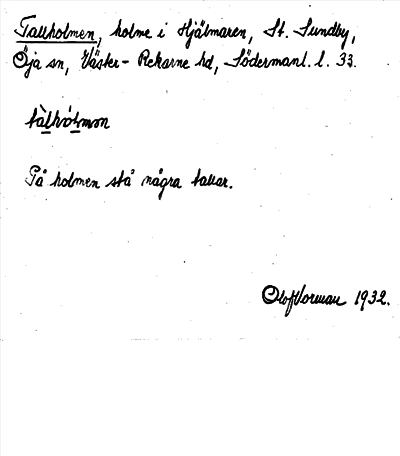 Tallholmen, holme i Hjälmaren, St. Sundby,
Öja sn, Väster-Rekarne hd, Södermanl. l. 33.
tàlhòlmən
På holmen stå några tallar.
Olof Norman 1932.